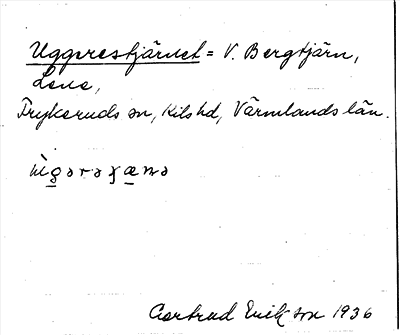 Uggerestjärnet = V. Bergtjärn,
Lene,
Frykeruds sn, Kils hd, Värmlands län.
Gertrud Eriksson 1936